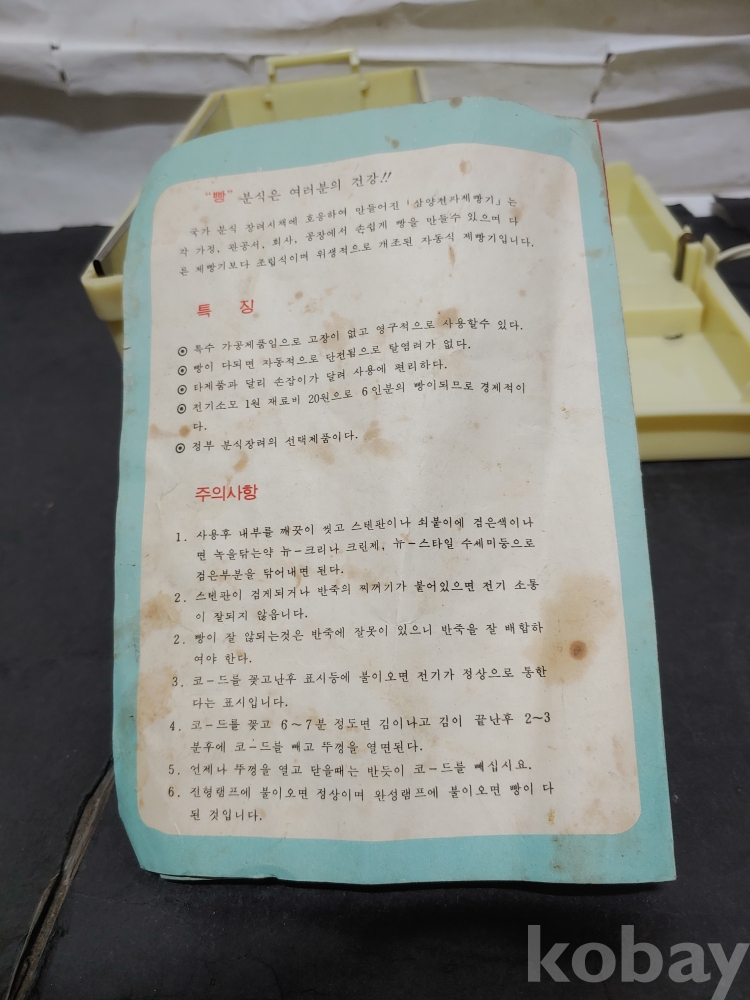 "빵" 분식은 여러분의 건강!!
국가 분식 장려시책에 호응하여 만들어진 「삼양전과제빵기」는
각 가정, 관공서, 회사, 공장에서 손쉽게 빵을 만들수 있으며 다
른 제빵기보다 조립식이며 위생적으로 개조된 자동식 제빵기입니다.
특 징
◉ 특수 가공제품임으로 고장이 없고 영구적으로 사용할수 있다.
◉ 빵이 다되면 자동적으로 단전됨으로 탈염려가 없다.
◉ 타제품과 달리 손잡이가 달려 사용에 편리하다.
◉ 전기소모 1원 재료비 20원으로 6인분의 빵이되므로 경제적이
다.
◉ 정부 분식장려의 선택제품이다.
주의사항
1. 사용후 내부를 깨끗이 씻고 스텐판이나 쇠붙이에 검은색이나
면 녹을닦는약 뉴-크리나 크린제, 뉴-스타일 수세미등으로
검은부분을 닦어내면 된다.
2. 스텐판이 검게되거나 반죽의 찌꺼기가 붙어있으면 전기 소통
이 잘되지 않읍니다.
2. 빵이 잘 않되는것은 반죽에 잘못이 있으니 반죽을 잘 배합하
여야 한다.
3. 코-드를 꽂고난후 표시등에 불이오면 전기가 정상으로 통한
다는 표시입니다.
4. 코-드를 꽂고 6~7분 정도면 김이나고 김이 끝난후 2~3
분후에 코-드를 빼고 뚜껑을 열면된다.
5. 언제나 뚜껑을 열고 닫을때는 반듯이 코-드를 빼십시요.
6. 진형램프에 불이오면 정상이며 완성램프에 불이오면 빵이 다
된 것입니다.
kobay